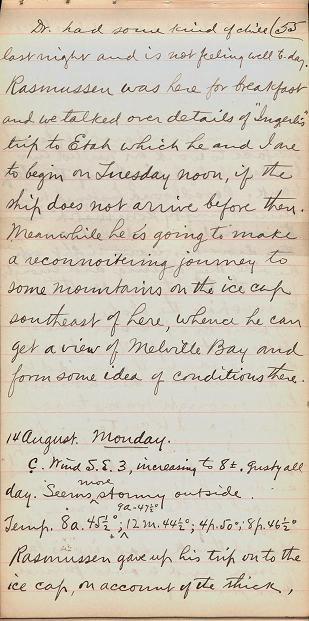 Dr. had some kind of chill (55
last night and is not feeling well to-day.
Rasmussen was here for breakfast
and we talked over details of "Ingerli's"
trip to Etah which he and I are
to begin on Tuesday noon, if the
ship does not arrive before then.
Meanwhile he is going to make
a reconnoitering journey to
some mountains on the ice cap
southeast of here, whence he can
get a view of Melville Bay and
form some idea of conditions there.
14 August. Monday.
C. Wind S.E. 3, increasing to 8±. Gusty all
more
day. Seems stormy outside.
9a-47½°
Temp. 8a. 45½°; 12m. 44½°; 4p. 50°; 8p. 46½°
Rasmussen gave up his trip on to the
ice cap, on account of the thick,